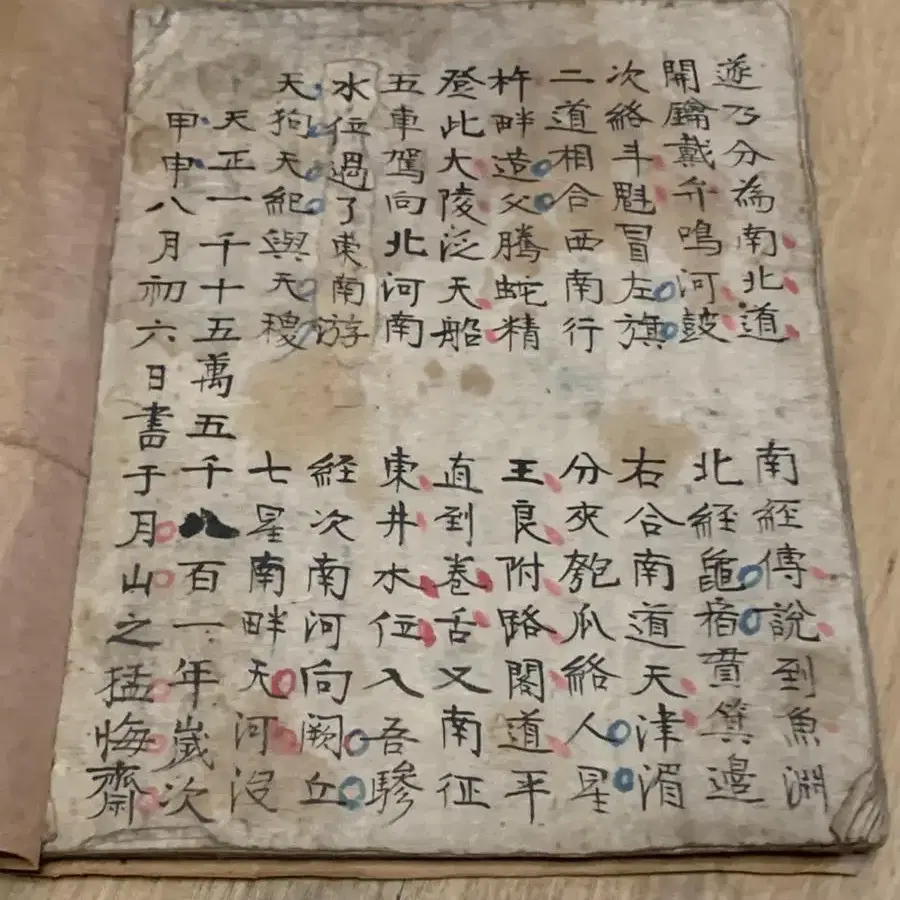 遂乃分為南北道 南經傳說到魚淵
開鑰戴弁鳴河鼓 北經龜宿貫箕邊
次絡斗魁冒左旗 右合南道天津湄
二道相合西南行 分夾匏瓜絡人星
杵畔造父騰蛇精 王良附路閣道平
登此大陵泛天船 直到卷舌又南征
五車駕向北河南 東井水位入吾驂
水位過了東南游 経次南河向闕丘
天狗天紀與天稷 七星南畔天河沒
天正一千十五萬五千八百一年歲次
甲申八月初六日書于月山之猛悔齋